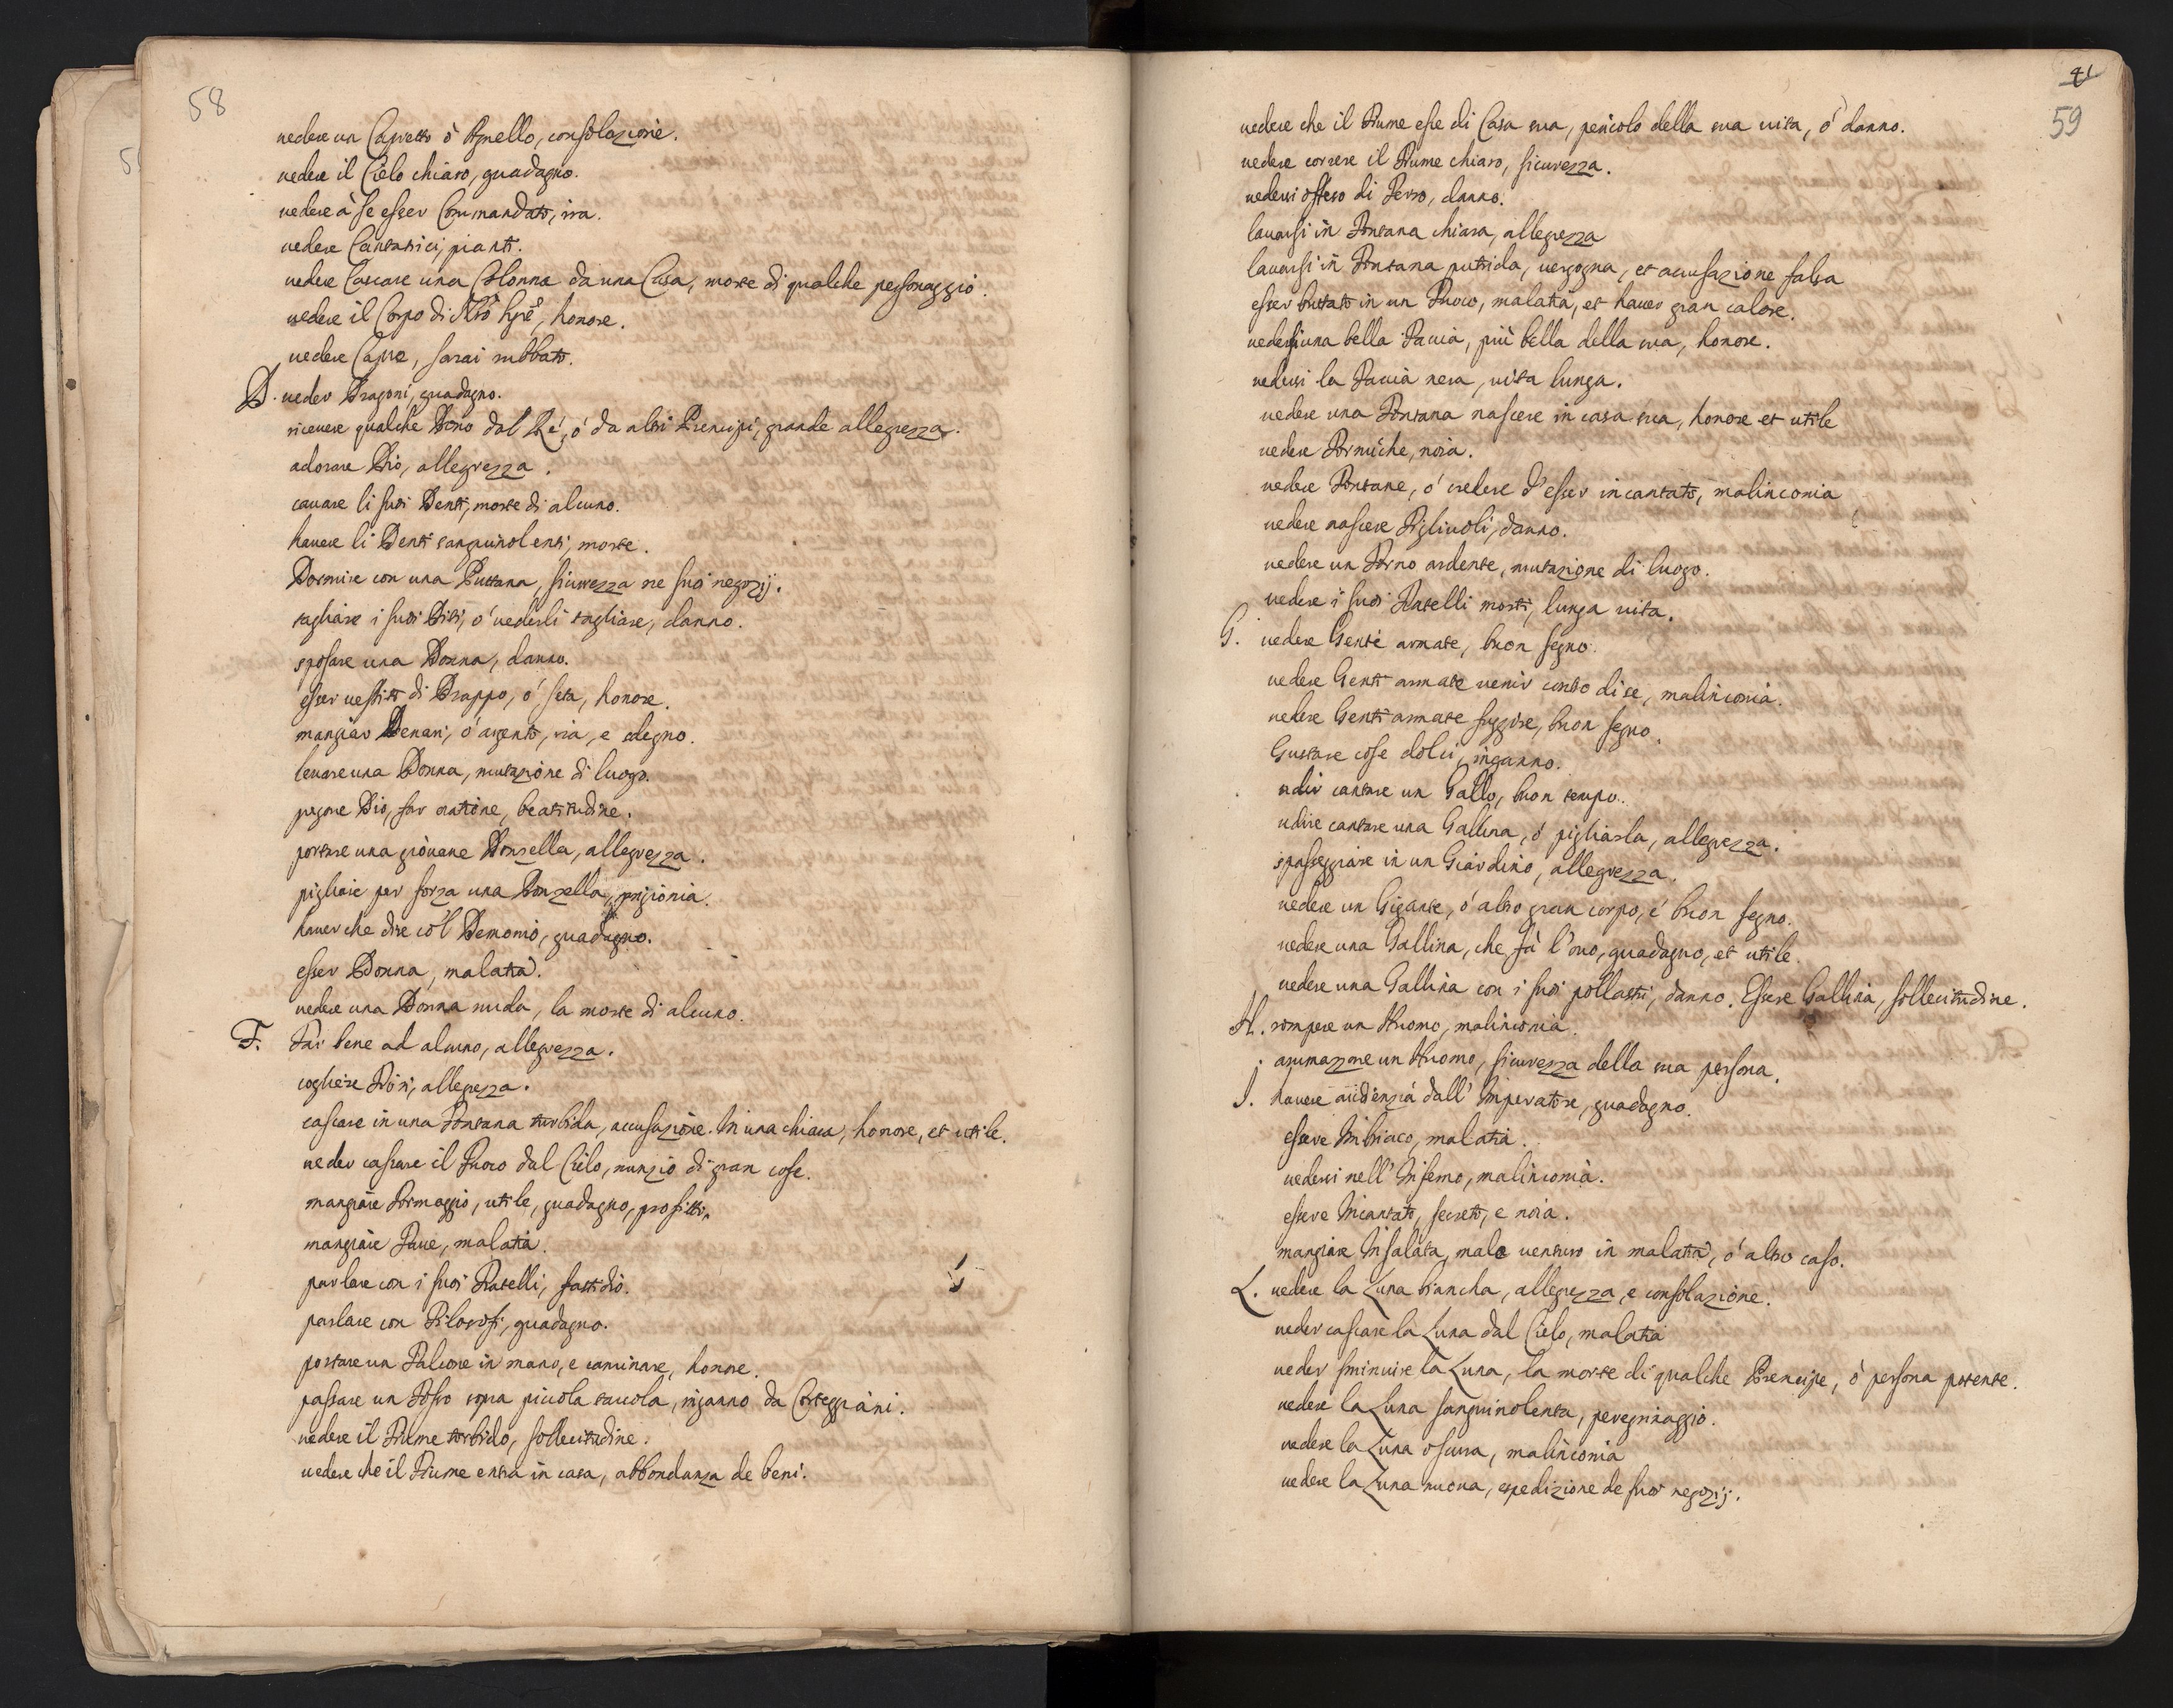 58
vedere un Capretto ò Agnello, consolazione.
vedere il Cielo chiaro, guadagno.
vedere à se esser Commandato, ira.
vedere Cantatrici, pianti.
vedere Cascare una Colonna da una Casa, morte di qualche personaggio.
vedere il Corpo di Nrõ Sigrẽ, honore.
vedere Capre, sarai rubbato.
D. veder Dragoni, guadagno.
ricevere qualche Dono dal Rè, ó da altri Prencipi, grande allegrezza.
adorare Dio, allegrezza.
cavare li suoi Denti, morte di alcuno.
havere li Denti sanguinolenti, morte.
Dormire con una Puttana, sicurezza ne suoi negozij.
tagliare i suoi Diti, ó vederli tagliare, danno.
sposare una Donna, danno.
esser vestito di Drappo, ó seta, honore.
mangiar Denari, ó argento, ira, e sdegno.
levare una Donna, mutazione di luogo.
pregare Dio, far oratione, beatitudine.
portare una giovane Donzella, allegrezza.
pigliare per forza una Donzella, prigionia.
haver che dire co'l Demonio, guadagno.
esser Donna, malatia.
vedere una Donna nuda, la morte di alcuno.
F. Far bene ad alcuno, allegrezza.
cogliere Fiori, allegrezza.
cascare in una Fontana turbida, accusazione. In una chiara, honore, et utile.
veder cascare il Fuoco dal Cielo, nunzio di gran cose.
mangiare Formaggio, utile, guadagno, profitto.
mangiare Fave, malatia.
parlare con i suoi Fratelli, fastidio.
parlare con Filosofi, guadagno.
portare un Falcone in mano, e caminare, honore.
passare un Fosso sopra piccola tavola, inganno da Corteggiani.
vedere il Fiume torbido, sollecitudine.
vedere che il Fiume entra in casa, abbondanza de beni.
41
59
vedere che il Fiume esce di Casa sua, pericolo della sua vita, ó danno.
vedere correre il Fiume chiaro, sicurezza.
vedersi offeso di Ferro, danno.
lavarsi in Fontana chiara, allegrezza
lavarsi in Fontana putrida, vergogna, et accusazione falsa
esser buttato in un Fuoco, malatia, et haver gran calore.
vedersi una bella Faccia, più bella della sua, honore.
vedersi la Faccia nera, vita lunga.
vedere una Fontana nascere in casa sua, honore et utile
vedere Formiche, noia.
vedere Fontane, ó credere d'esser incantato, malinconia
vedere nascere Figliuoli, danno.
vedere un Forno ardente, mutazione di luogo.
vedere i suoi Fratelli morti, lunga vita.
G. vedere Gente armate, buon segno.
vedere Genti armate venir contro di se, malinconia.
vedere Genti armate fuggire, buon segno.
Gustare cose dolci, inganno.
udir cantare un Gallo, buon tempo.
udire cantare una Gallina, ó pigliarla, allegrezza.
spasseggiare in un Giardino, allegrezza.
vedere un Gigante, ó altro gran corpo, é buon segno.
vedere una Gallina, che fà l'ovo, guadagno, et utile.
vedere una Gallina con i suoi pollastri, danno. Essere Gallina, sollecitudine.
H. rompere un Huomo, malinconia.
amazzare un Huomo, sicurezza della sua persona.
I. havere audienzia dall' Imperatore, guadagno.
essere Imbriaco, malatia.
vedersi nell' Inferno, malinconia.
essere Incantato, secreto, e noia.
mangiare Insalata, male venturo in malatia, ó altro caso.
L. vedere la Luna biancha, allegrezza, e consolazione.
veder cascare la Luna dal Cielo, malatia
veder sminuire la Luna, la morte di qualche Prencipe, ò persona potente.
vedere la Luna sanguinolenta, peregrinaggio.
vedere la Luna oscura, malinconia
vedere la Luna nuova, espedizione de suoi negozij.